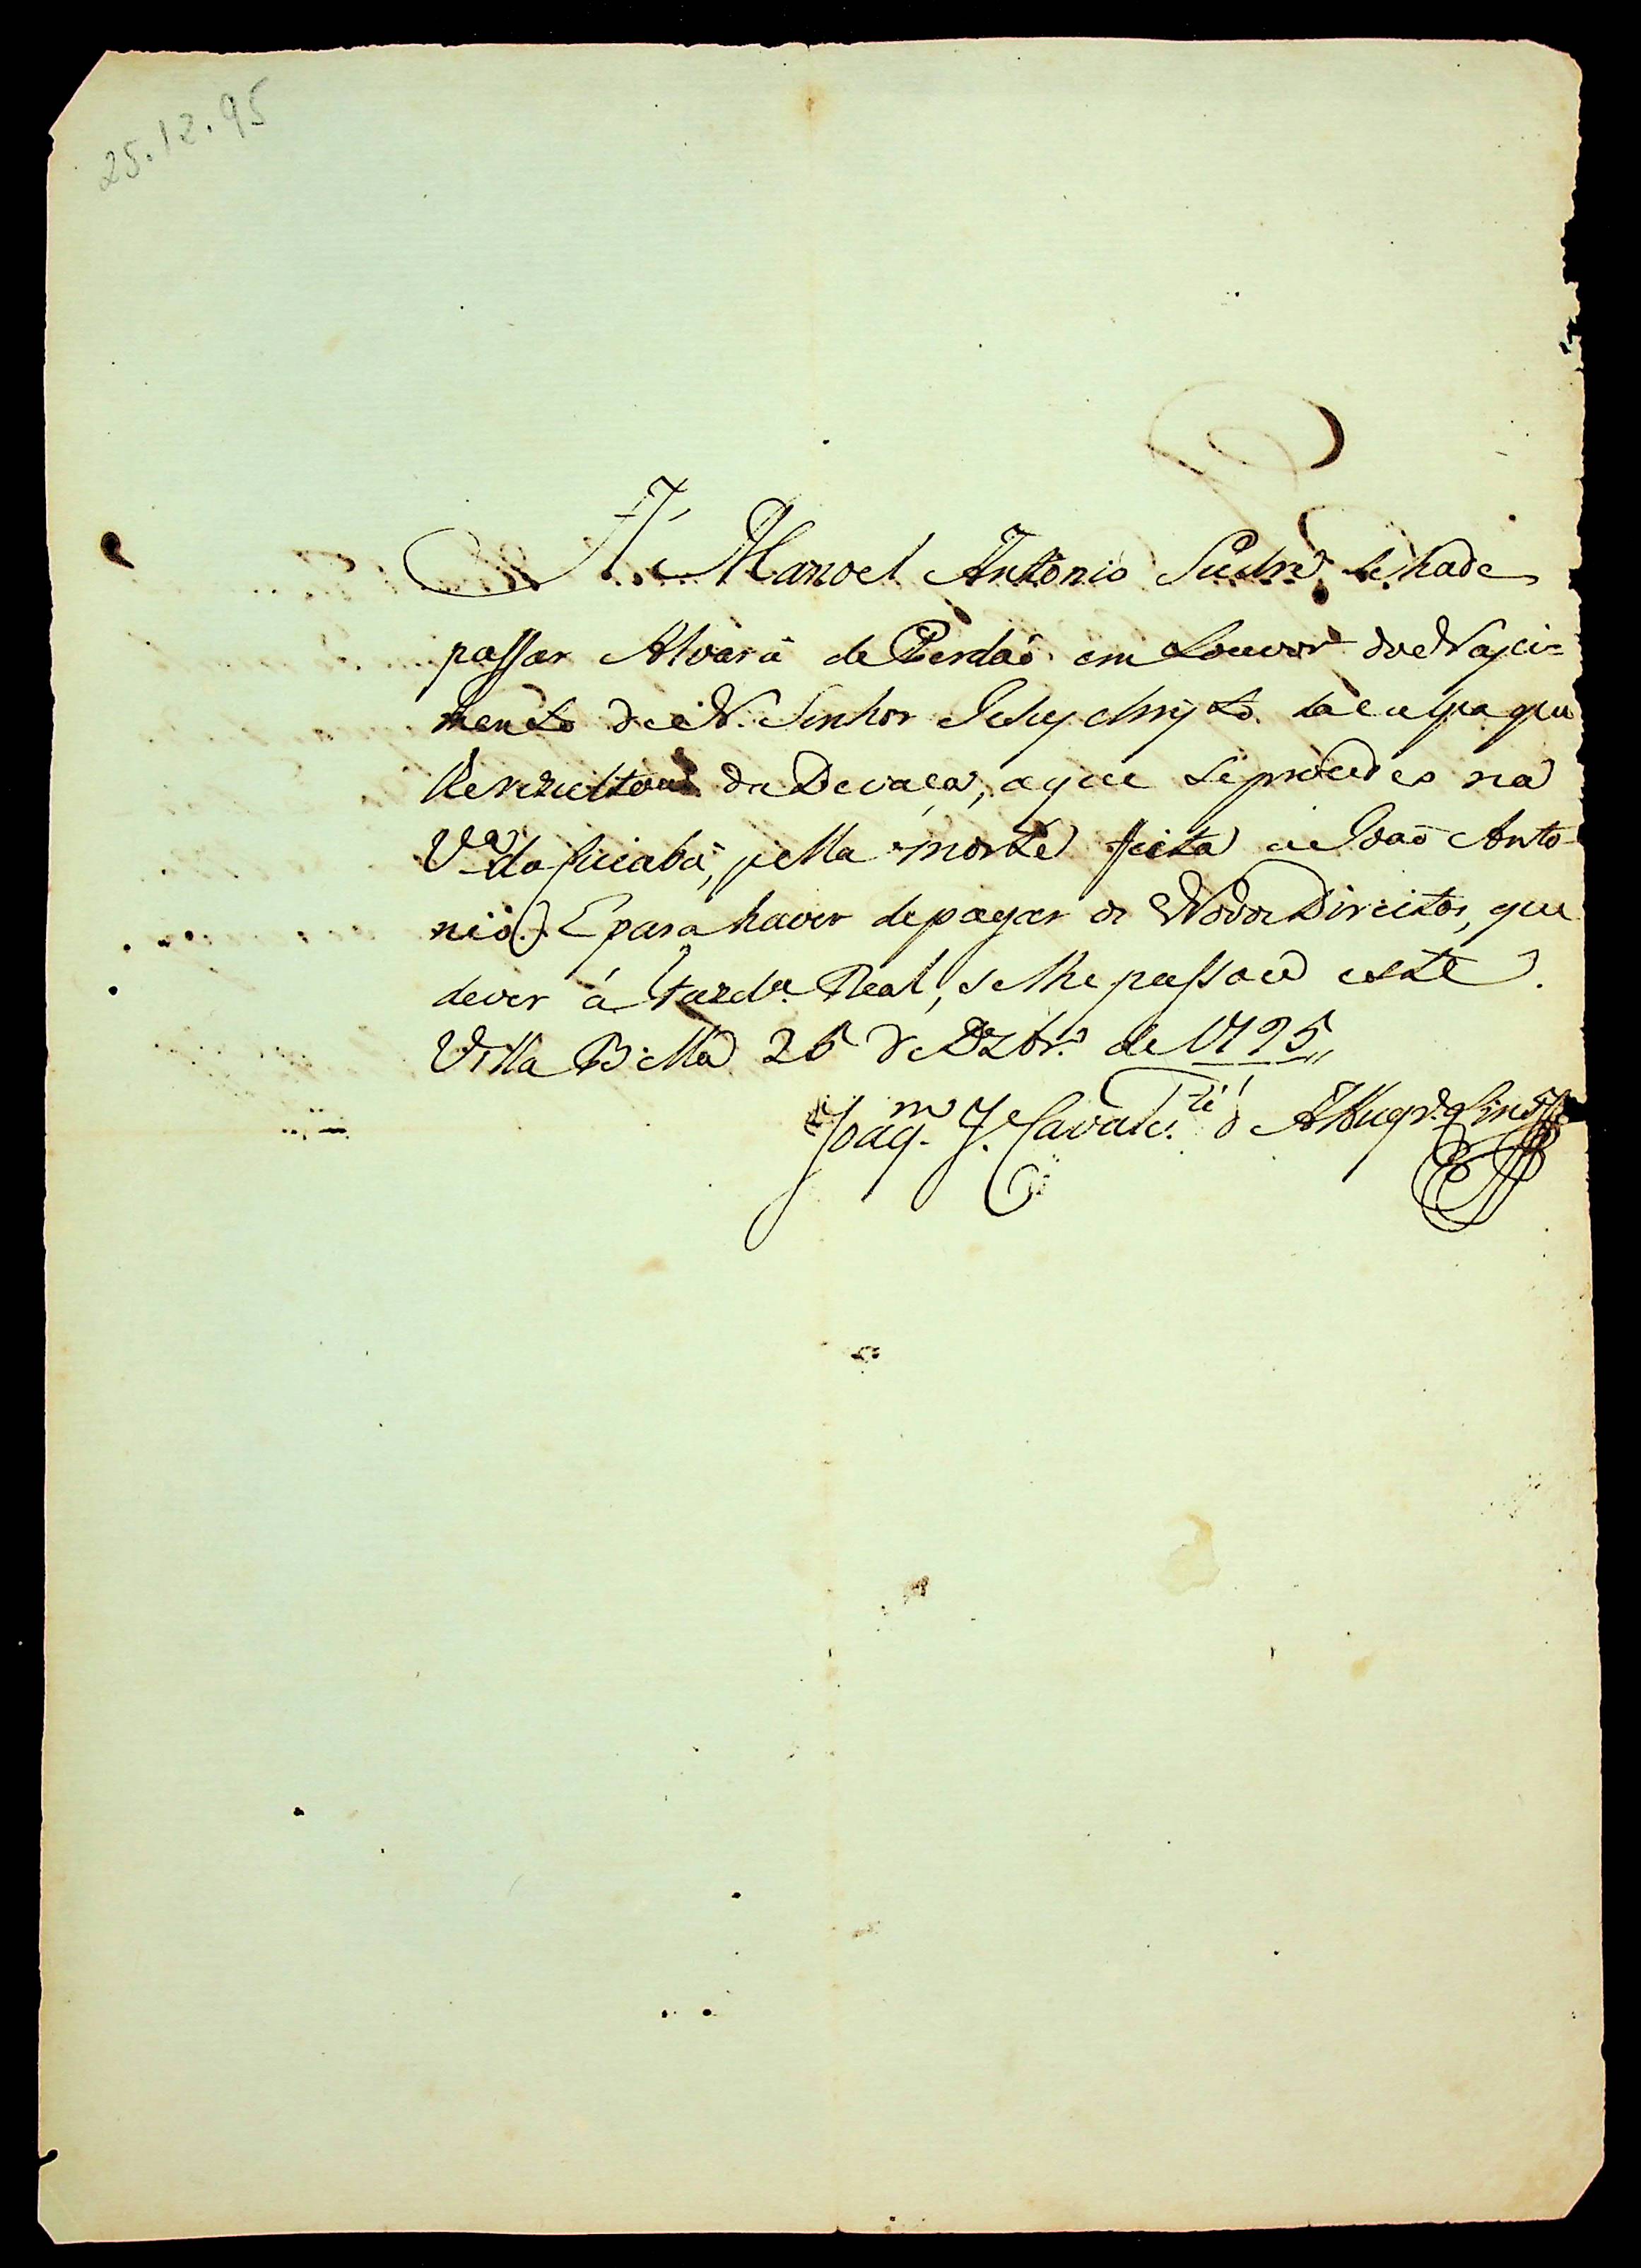 25.12.95
A Manoel Antonio se hade
passar Alvará de Perdaõ em Louvor do Nasci-
mento de N. Senhor Jesus Christo da culpa que
lhe rezultou da Devaça, a que se procedeo na
V.ª do Cuiabá, pella morte feita a Joaõ Anto-
nio. E para haver de pagar os Novos Direitos, que
dever á Fazd.ª Real, se lhe passou este.
Villa Bella 25 de Dzbr.º de 1795,,
Joaq.m J. Cavalc.te d' Albuqr.e Lins